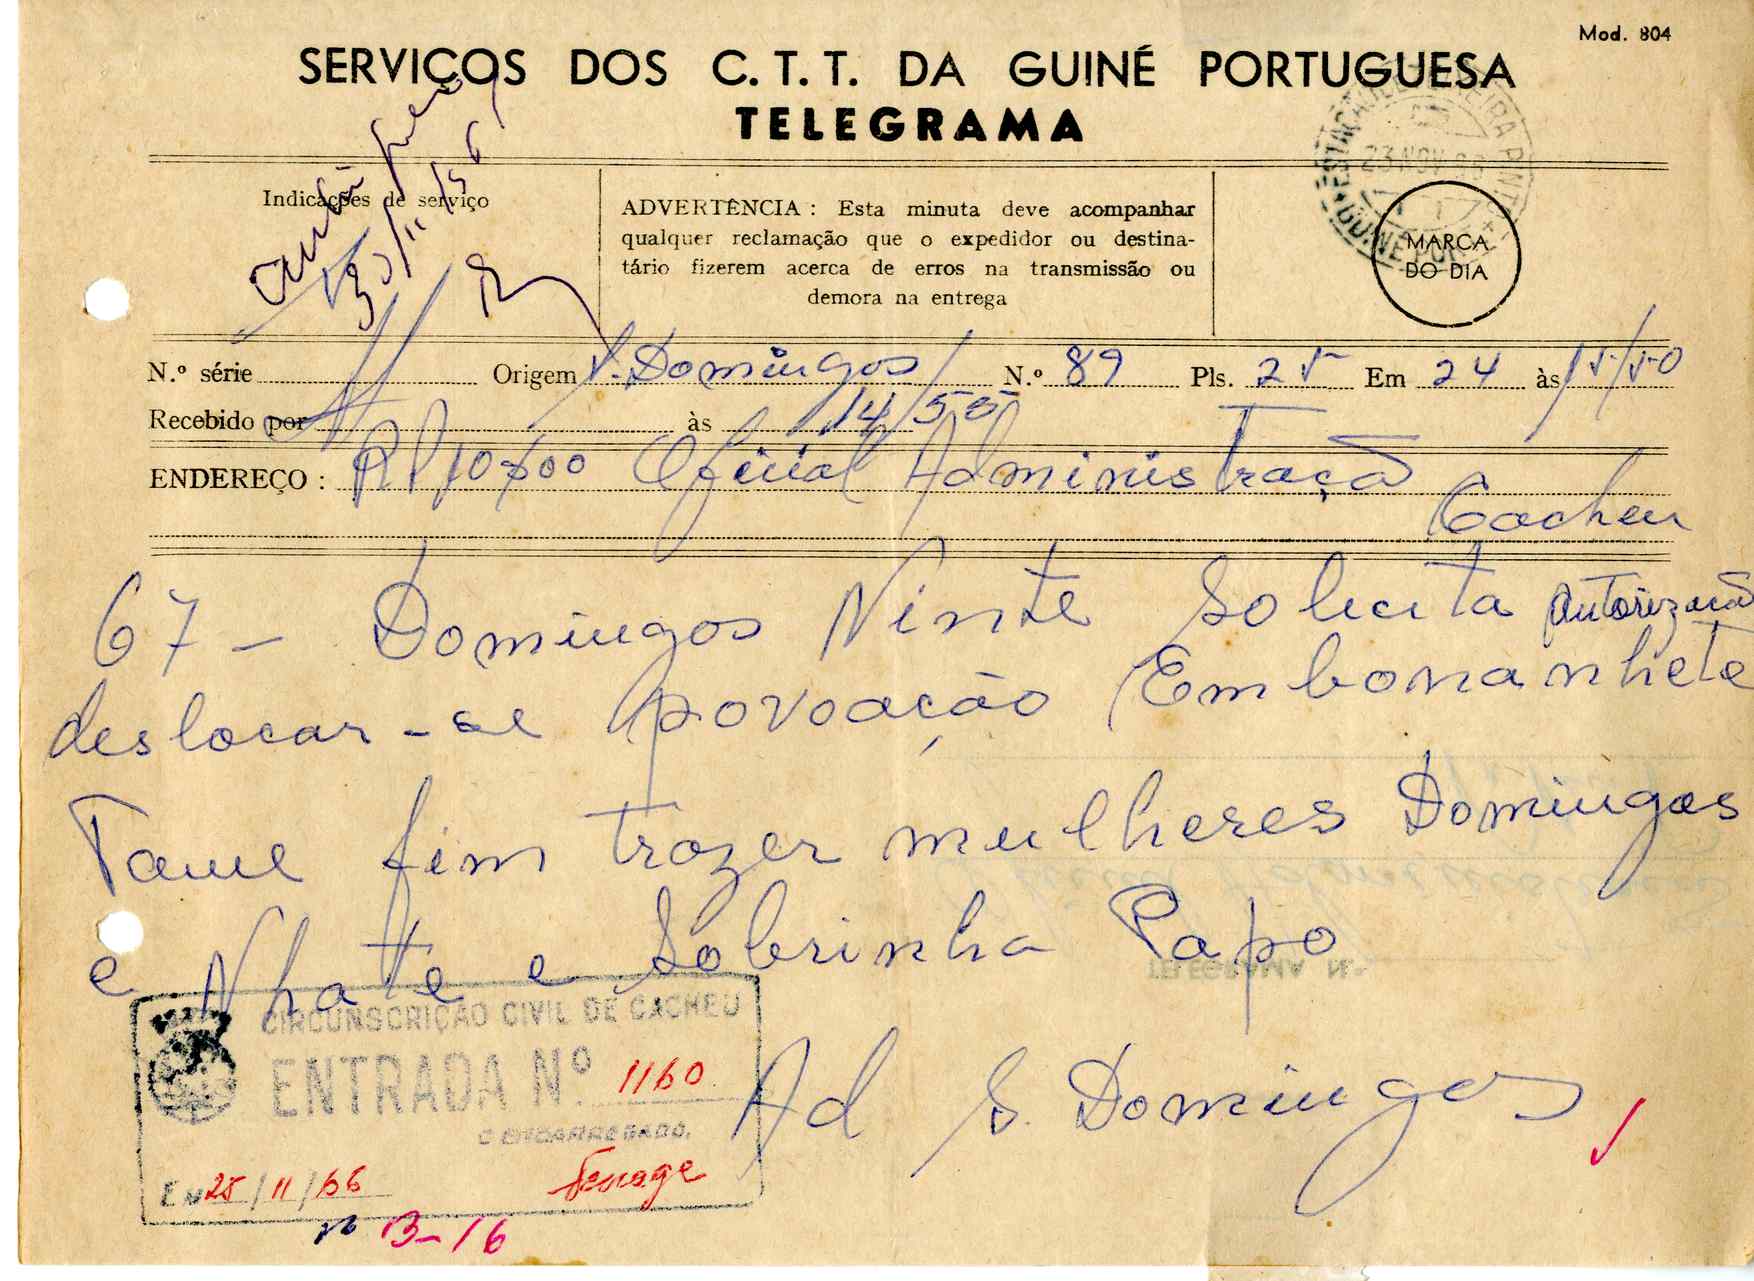 Mod. 804
SERVIÇOS DOS C. T. T. DA GUINÉ PORTUGUESA
TELEGRAMA
Indicações de serviço
ADVERTÊNCIA : Esta minuta deve acompanhar
qualquer reclamação que o expedidor ou destina-
tário fizerem acerca de erros na transmissão ou
demora na entrega
23 NOV
MARCA
DO DIA
N.º série Origem S. Domingos N.º 89 Pls. 25 Em 24 às 15/50
Recebido por às 14/55
ENDEREÇO : RP 10$00 Oficial Administração
Cacheu
67 - Domingos Ninte Solicita autorização
deslocar-se povoação Embonanhete
Tame fim trazer mulheres Domingos
e Nhate e Sobrinha Papo
CIRCUNSCRIÇÃO CIVIL DE CACHEU
ENTRADA Nº. 1160
Ad S. Domingos
O ENCARREGADO,
EM 25/11/66
B-16